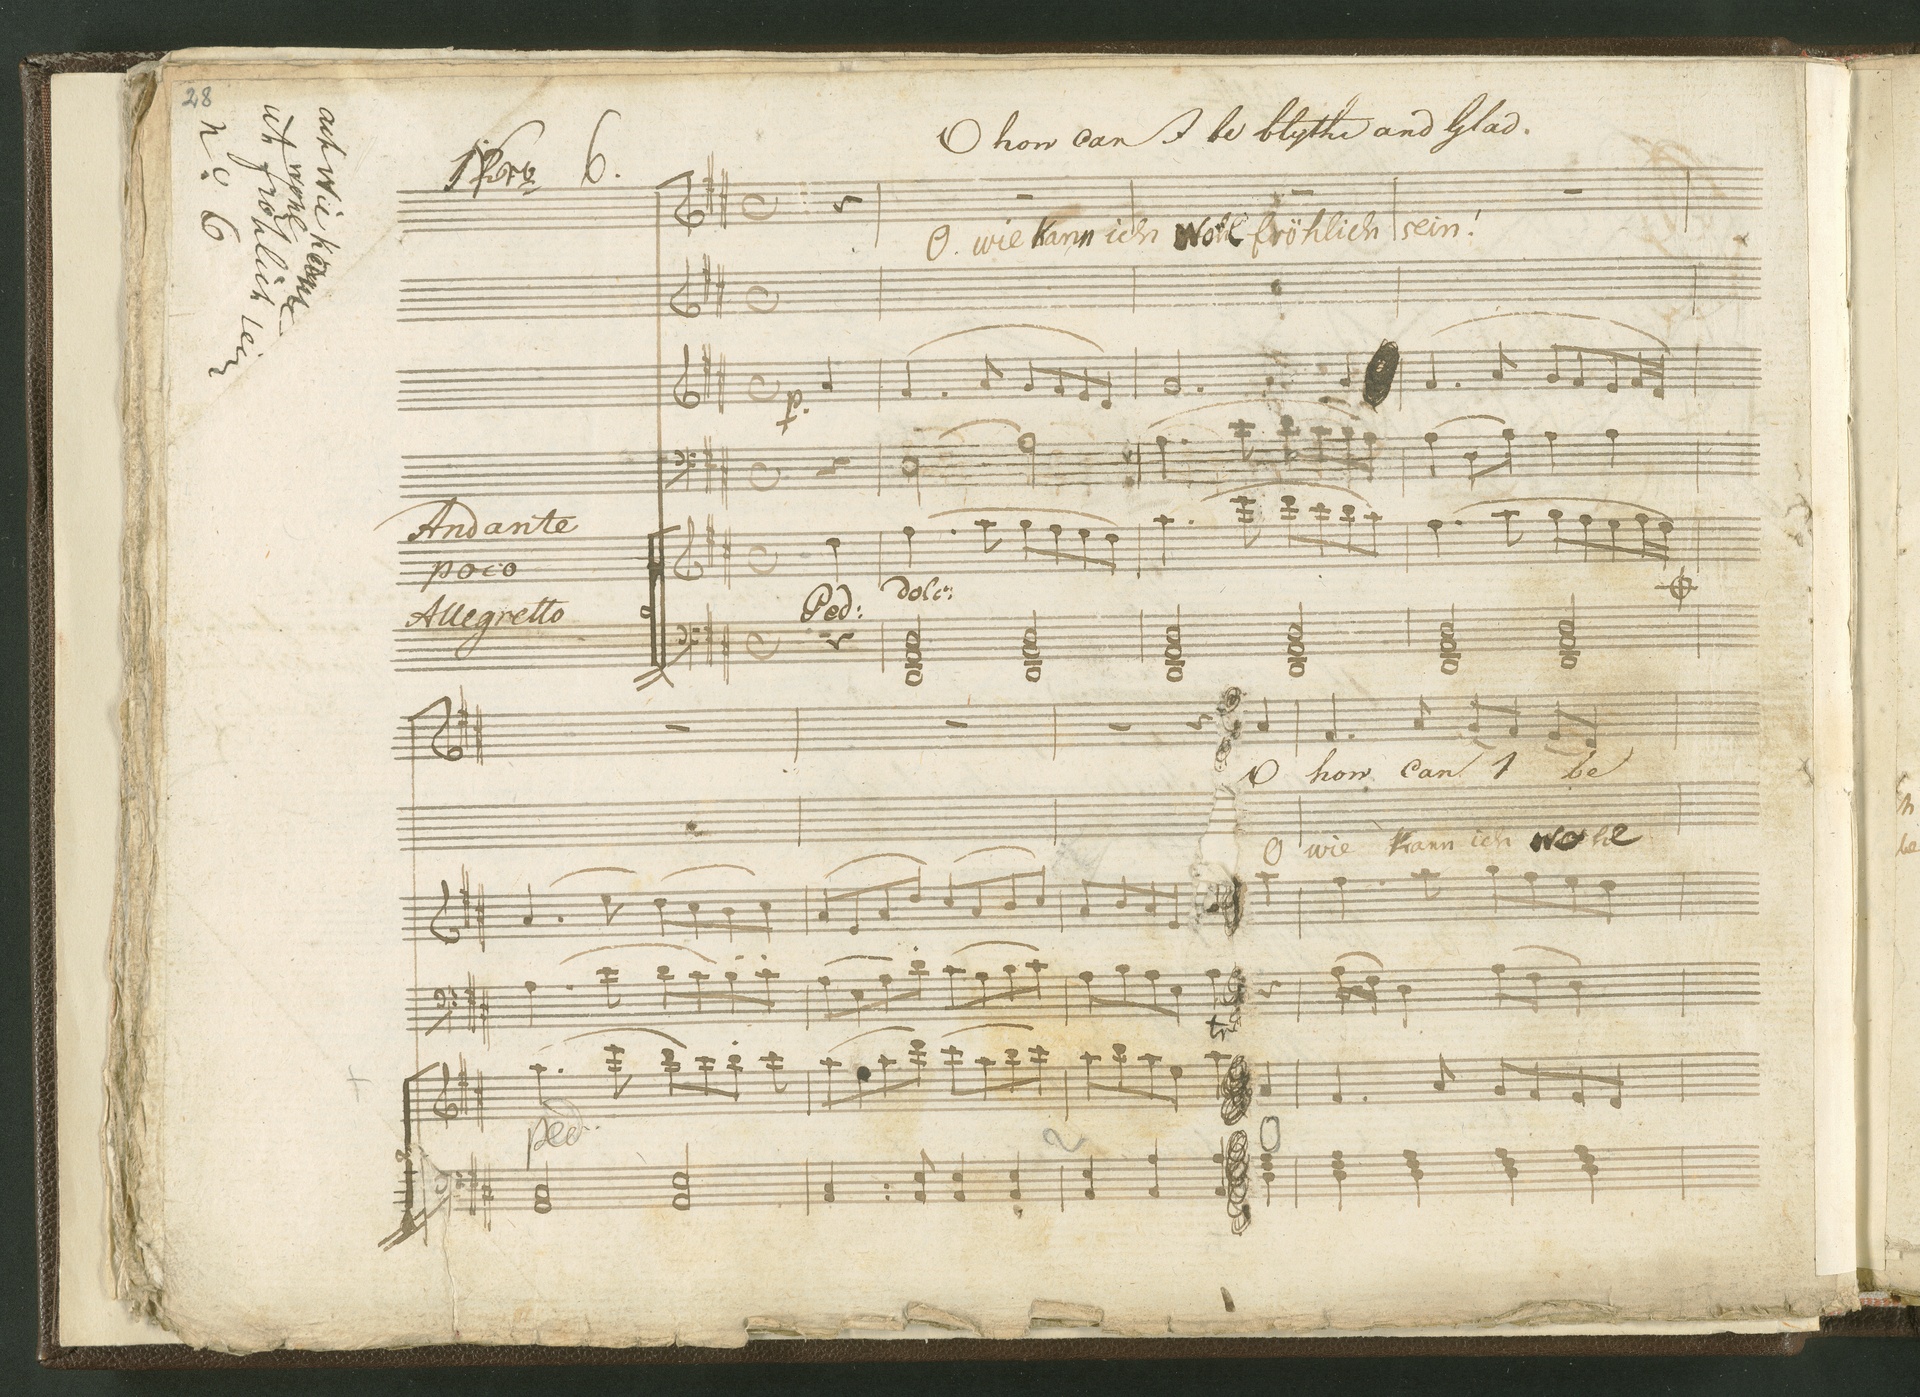 28
ach wie kann
ich wohl
fröhlich sein
No 6
Nro 6.
O how can I be blythe and Glad.
O. wie kann ich wohl fröhlich sein!
Andante
poco
Allegretto
Ped:
dolc:
O how can I be
O wie kann ich wohl
ped: